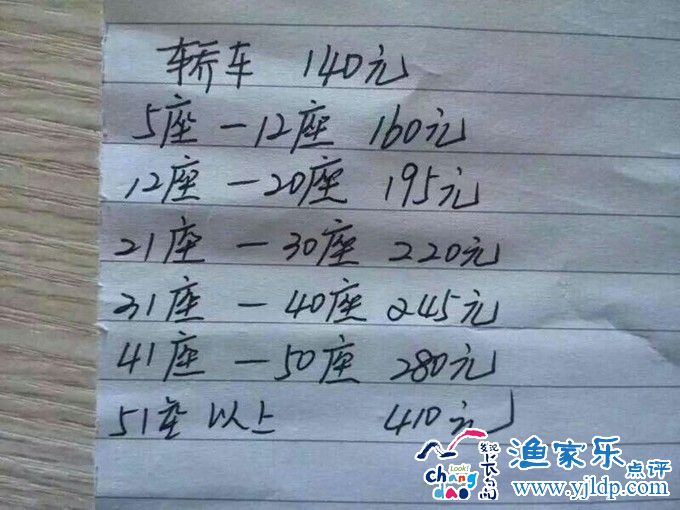 轿车 140元
5座-12座 160元
12座-20座 195元
21座-30座 220元
31座-40座 245元
41座-50座 280元
51座以上 410元
Look!
发现
长岛
chang
dao
渔家乐点评
www.yjldp.com